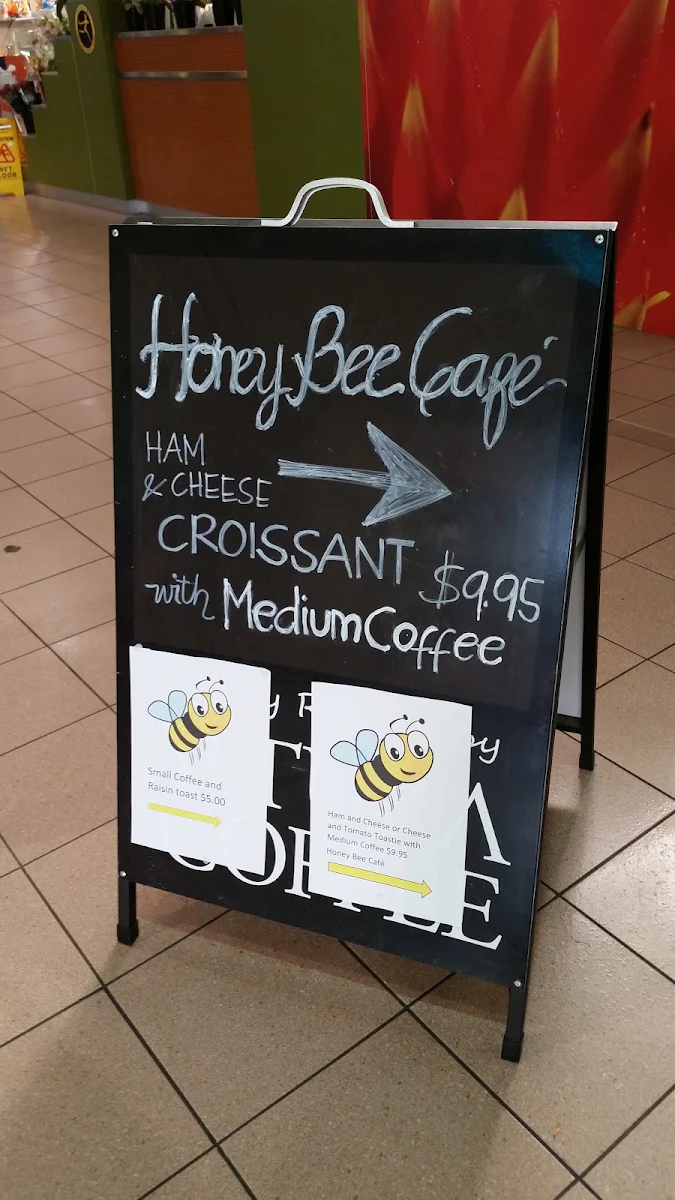 Honey Bee Café
HAM
& CHEESE
CROISSANT $9.95
with Medium Coffee
Small Coffee and
Raisin toast $5.00
Ham and Cheese or Cheese
and Tomato Toastie with
Medium Coffee $9.95
Honey Bee Café
COFFEE